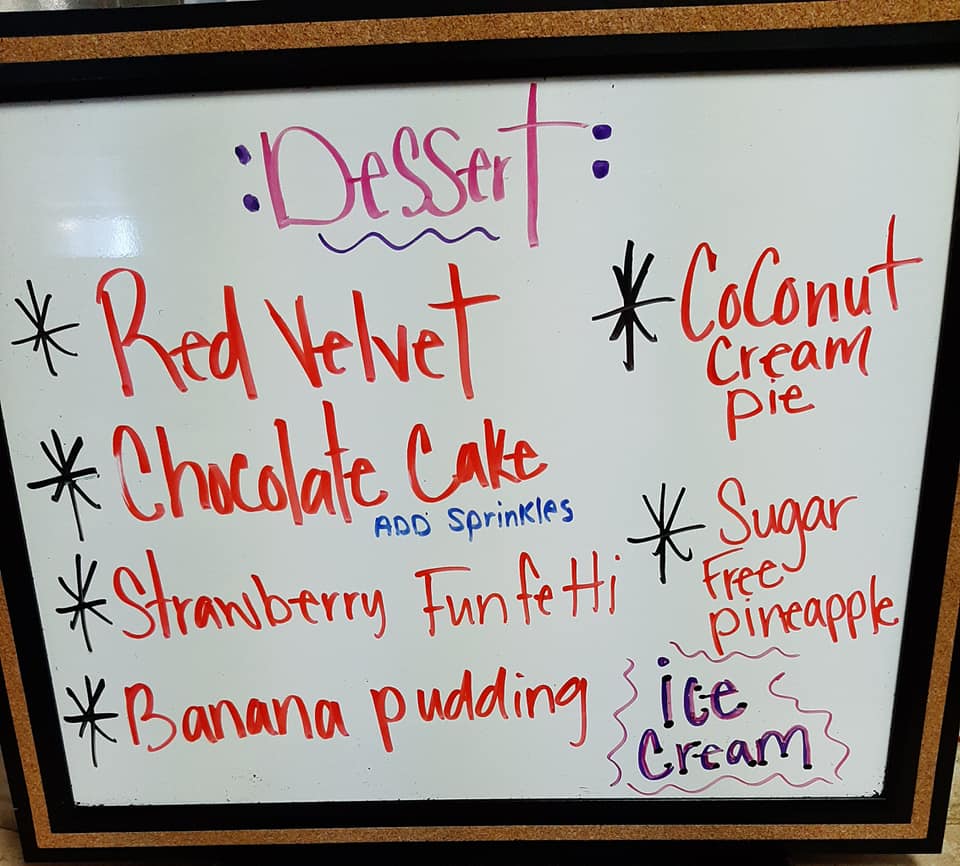 :Dessert:
* Red Velvet
* Chocolate Cake
ADD Sprinkles
* Strawberry Funfetti
* Banana pudding
* Coconut
Cream
pie
* Sugar
Free
pineapple
ice
Cream